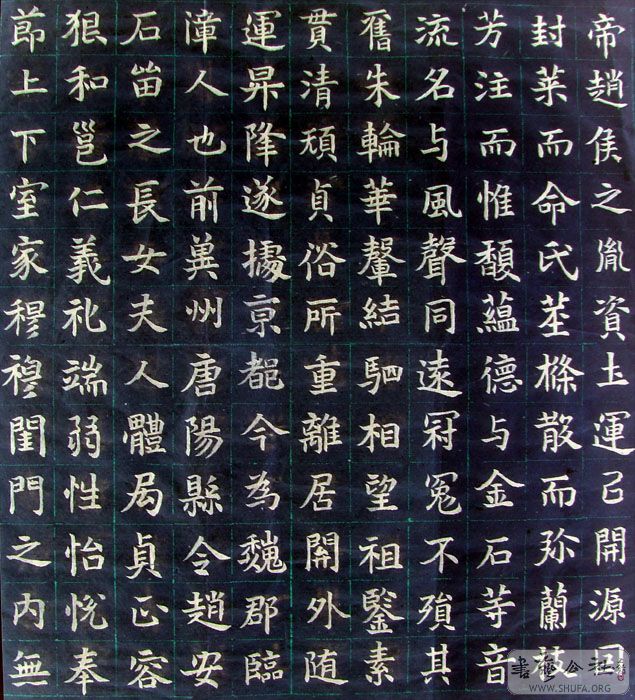 帝趙侯之胤資圡運已開源
封萊而命氏莖條散而弥蘭
芳注而惟馥蘊德与金石等音
流名与風聲同遠冠冕不殞其
舊朱輪華轂結駟相望祖鑒素
貫清頑貞俗所重離居開外随
運昇降遂據京都今為魏郡臨
漳人也前兾州唐陽縣令趙安
石畄之長女夫人體局貞正容
狠和邕仁義礼端弱性怡悅奉
莭上下室家穆穆閨門之内無
WWW.SHUFA.ORG